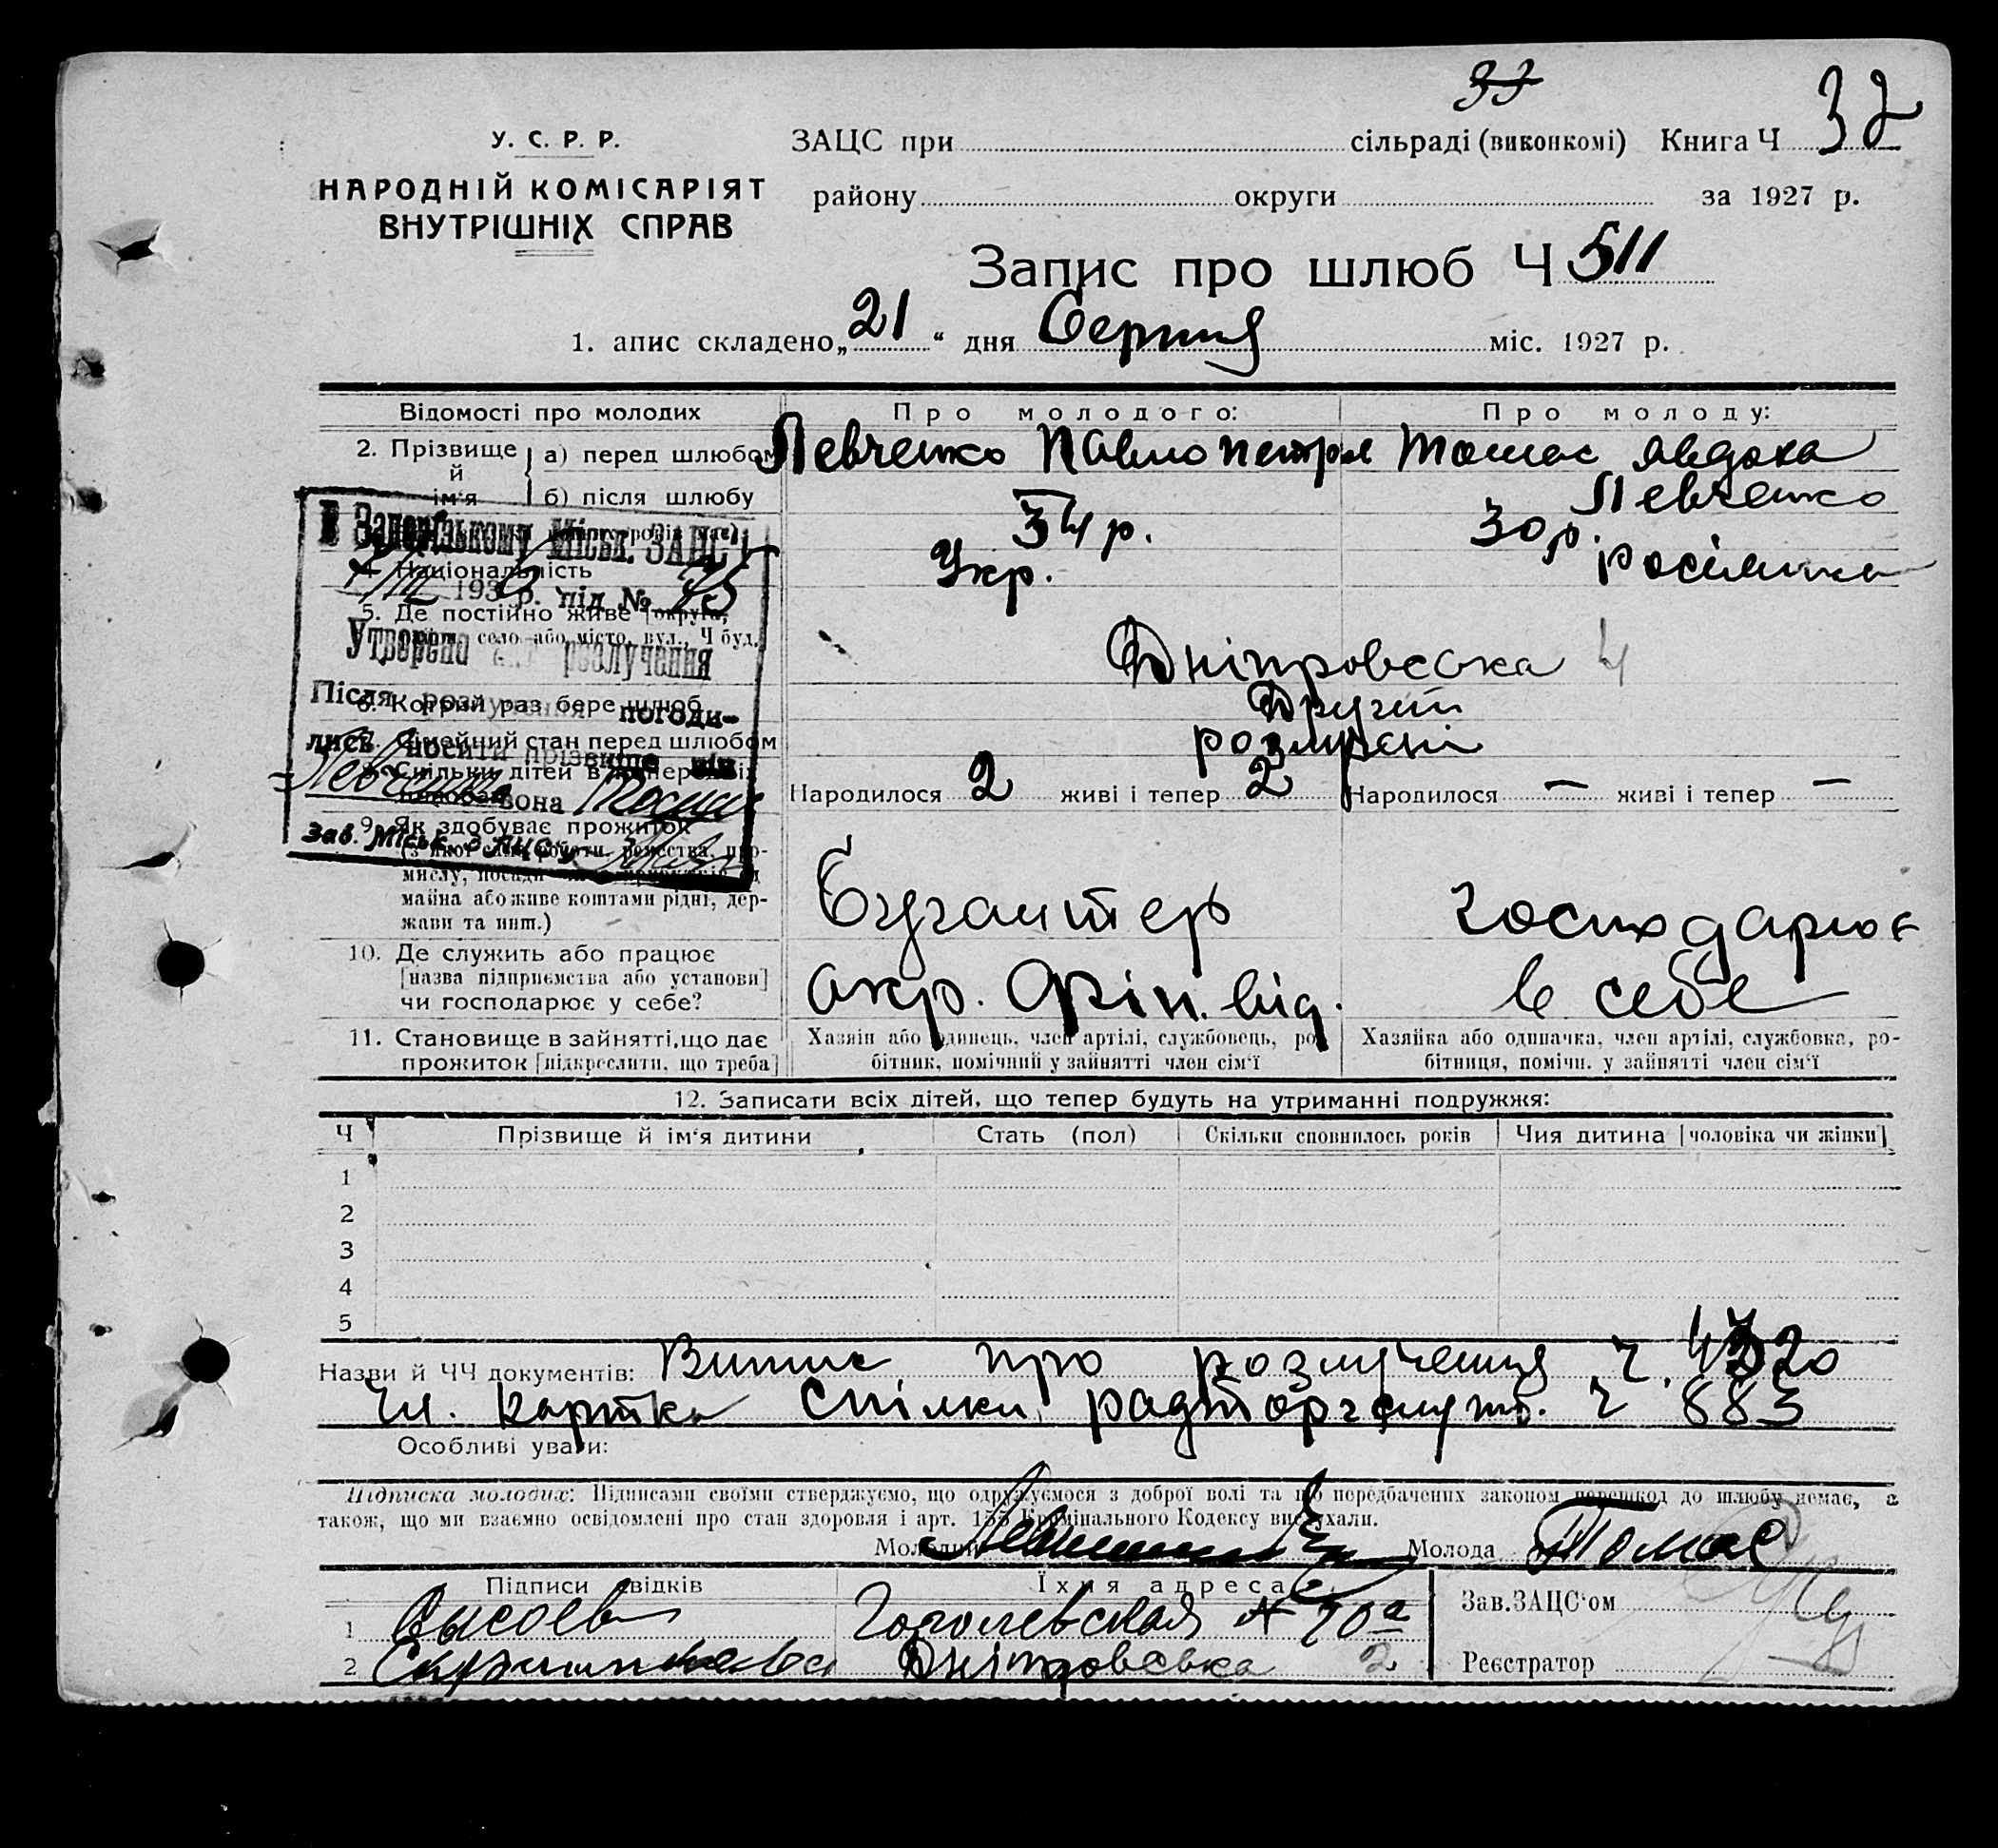 33
У. С. Р. Р.
НАРОДНІЙ КОМІСАРІЯТ
ВНУТРІШНІХ СПРАВ
ЗАЦС при сільраді (виконкомі) Книга Ч 32
району округи за 1927 р.
Запис про шлюб Ч 511
1. апис складено „21“ дня Серпня міс. 1927 р.
Відомості про молодих Про молодого: Про молоду:
2. Прізвище й ім'я а) перед шлюбом Левченко Павло Петров Томас Явдоха
б) після шлюбу Левченко
34 р. 30 р.
4. Національність Укр. росіянка
5. Де постійно живе [округа,
село або місто, вул., Ч буд.
Дніпровська 4
6. Котрий раз бере шлюб Другий
7. Сімейний стан перед шлюбом розлучені
8. Скільки дітей в
Народилося 2 живі і тепер 2 Народилося — живі і тепер —
9. Як здобуває прожиток
майна або живе коштами рідні, держави та инш.)
Бухгалтер господарює
10. Де служить або працює
[назва підприємства або установи]
чи господарює у себе?
Окр. Фін. від. в себе
11. Становище в зайнятті, що дає
прожиток [підкреслити, що треба]
Хазяїн або одинець, член артілі, службовець, робітник, помічний у зайнятті член сім'ї
Хазяйка або одиначка, член артілі, службовка, робітниця, помічн. у зайнятті член сім'ї
В Запорізькому Міськ. ЗАЦС'і
VIII 1936 р. під № 75
Утворено акт розлучення
Після розлучення погодились носити прізвище він
Левченко вона Томас
Зав. Міськ. ЗАЦС'у
12. Записати всіх дітей, що тепер будуть на утриманні подружжя:
Ч Прізвище й ім'я дитини Стать (пол) Скільки сповнилось років Чия дитина [чоловіка чи жінки]
1
2
3
4
5
Назви й ЧЧ документів: Випис про розлучення ч.
Чл. картка Спілки радторгслужб. ч 883
Особливі уваги:
Підписка молодих: Підписами своїми стверджуємо, що одружуємося з доброї волі та що передбачених законом перешкод до шлюбу немає, а
також, що ми взаємно освідомлені про стан здоровля і арт. 155 Кримінального Кодексу вислухали.
Молодий Молода Томас
Підписи свідків Їхня адреса Зав. ЗАЦС'ом
1 Гоголевская № 70а
2 Дніпровська 2 Реєстратор